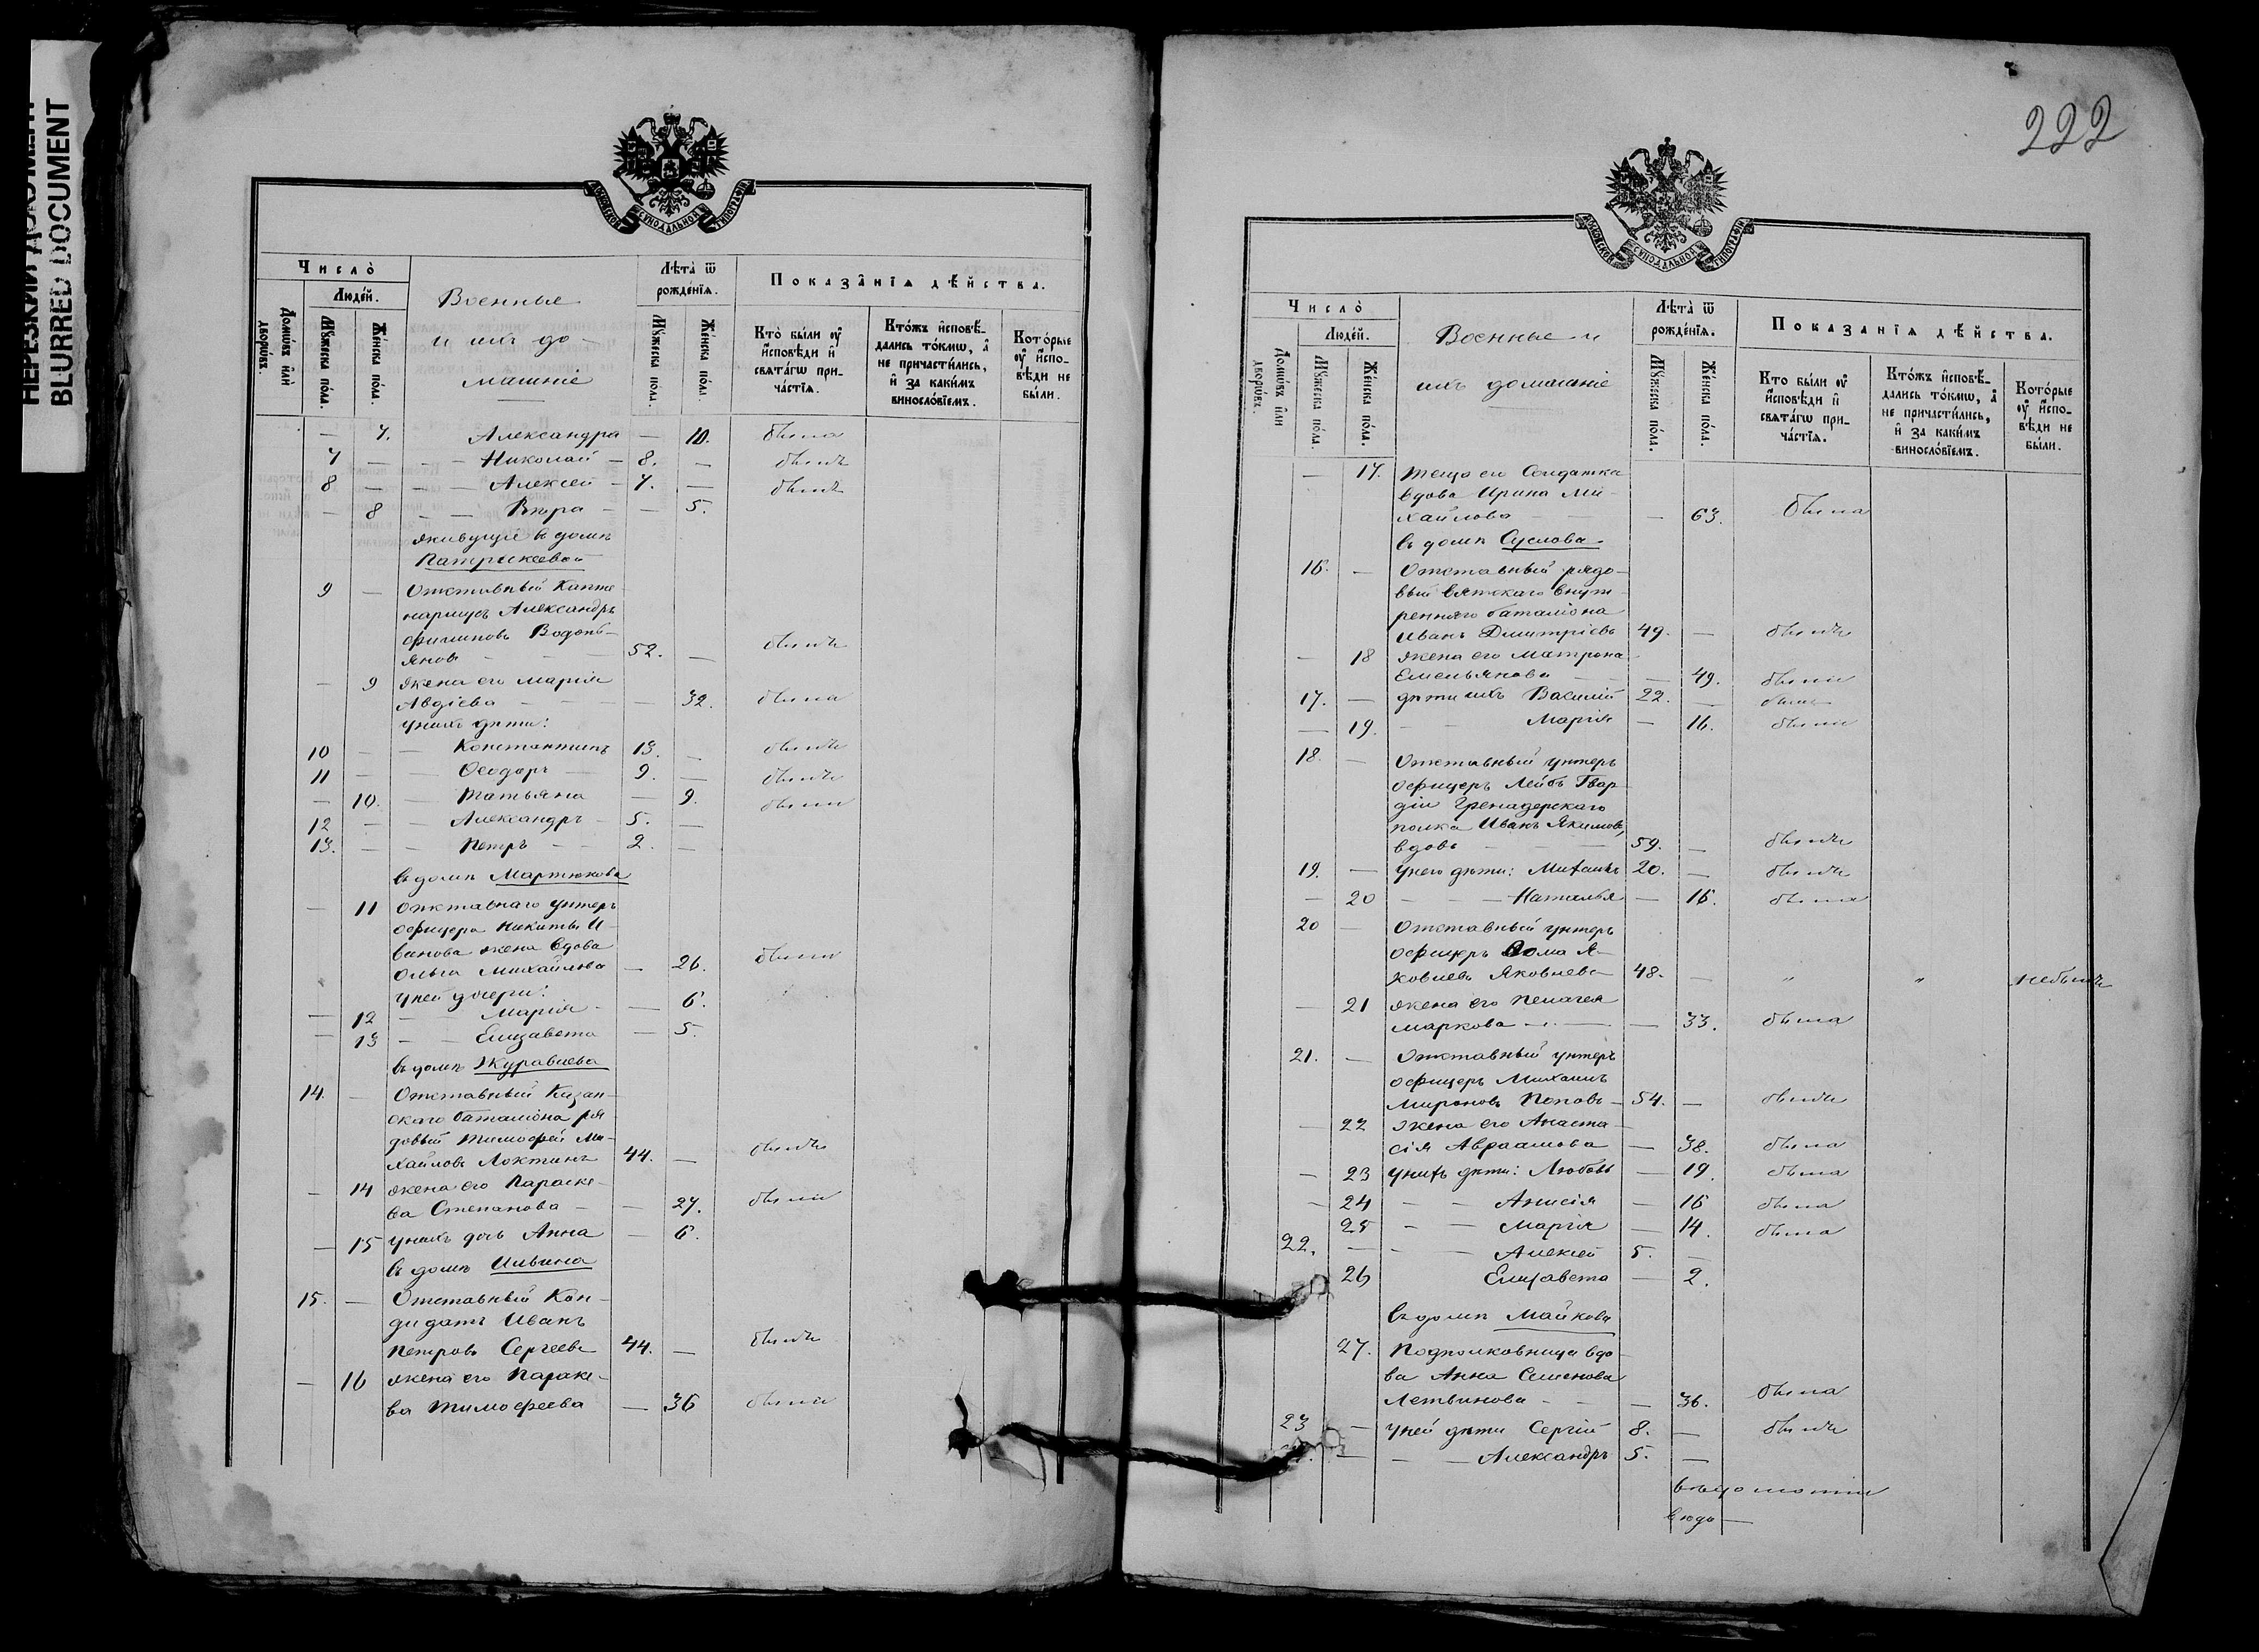 НЕРЕЗКИЙ ДОКУМЕНТ
BLURRED DOCUMENT
МОСКОВСКОЙ СѴНОДАЛЬНОЙ ТИПОГРАФІИ
Число̀
Людéй.
Домѡ́въ и҆лѝ дворѡ́въ.
Мꙋ́жеска по́ла.
Же́нска по́ла.
Военные
и ихъ до-
машніе
Лѣта̀ ѿ рожде́нїѧ.
Мꙋ́жеска по́ла.
Же́нска по́ла.
Показа̑нїѧ дѣ́йства.
Кто̀ бы́ли ᲂу҆ и҆сповѣди и҆ свѧта́гѡ причастїѧ.
Кто́жъ и҆сповѣдались то́кмѡ, а҆ не причасти́лись, и҆ за каки́мъ винословїемъ.
Кото́рые ᲂу҆ и҆сповѣди не бы́ли.
— 7. Александра — 10. была
7 — — — Николай — 8. — былъ
8 — — — Алексей — 7. — былъ
— 8 — — Вѣра — — 5.
живущіе въ домѣ
Патрикеевой
9 — Отставный Капте-
нармусъ Александръ
Филиповъ Водопь-
яновъ — — — 52. — былъ
— 9 жена его Марія
Авдіева — — — — 32. была
у нихъ дѣти:
10 — — Константинъ 13. — былъ
11 — — Ѳеодоръ — 9. — былъ
— 10. — Татьяна — 9. была
12 — — Александръ — 5. —
13. — — Петръ — — 2. —
въ домѣ Мартюкова
— 11 Отставнаго унтеръ
офицера Никиты И-
ванова жена вдова
Ольга Михайлова — 26. была
у ней дочери:
— 12 — Марія — — 6.
— 13 — — Елизавета — 5.
въ домѣ Журавлева
14. — Отставный Казан-
скаго баталіона ря-
довый Тимофей Ми-
хайловъ Локтинъ 44. — былъ
— 14 жена его Параске-
ва Степанова — — 27. была
— 15 у нихъ дочь Анна — 6.
въ домѣ Ильина
15. — Отставный Кан-
дидатъ Иванъ
Петровъ Сергеевъ 44. — былъ
— 16 жена его Параске-
ва Тимофеева — 36 была
222
МОСКОВСКОЙ СѴНОДАЛЬНОЙ ТИПОГРАФІИ
Число̀
Людéй.
Домѡ́въ и҆лѝ дворѡ́въ.
Мꙋ́жеска по́ла.
Же́нска по́ла.
Военные и
ихъ домашніе
Лѣта̀ ѿ рожде́нїѧ.
Мꙋ́жеска по́ла.
Же́нска по́ла.
Показа̑нїѧ дѣ́йства.
Кто̀ бы́ли ᲂу҆ и҆сповѣди и҆ свѧта́гѡ причастїѧ.
Кто́жъ и҆сповѣдались то́кмѡ, а҆ не причасти́лись, и҆ за каки́мъ винословїемъ.
Кото́рые ᲂу҆ и҆сповѣди не бы́ли.
— 17. теща его Солдатка
вдова Ирина Ми-
хайлова — — 63. была
въ домѣ Суслова
16. — Отставный рядо-
вый Вятскаго внут-
ренняго баталіона
Иванъ Дмитріевъ 49. — былъ
— 18 жена его Матрона
Емельянова — — — 49. была
17. — дѣти ихъ Василій 22. — былъ
— 19. — — Марія — 16. была
18. — Отставный унтеръ
офицеръ Лейбъ Гвар-
діи Гренадерскаго
полка Иванъ Якимовъ,
вдовъ — — — 59. — былъ
19. — у него дѣти: Михаилъ 20. — былъ
— 20 — — — Наталья — 16. была
20 — Отставный унтеръ
офицеръ Ѳома Я-
ковлевъ Яковлевъ 48. — „ „ небылъ
— 21 жена его Пелагея
Маркова — — — 33. была
21. — Отставный унтеръ
офицеръ Михаилъ
Мироновъ Поповъ — 54. — былъ
— 22 жена его Анаста-
сія Авраамова — 38. была
— 23 у нихъ дѣти: Любовь — 19. была
— 24 — — Анисія — 16 была
25 — — Марія — 14. была
22. — — — Алексей 5. —
26 Елизавета — 2.
въ домѣ Майкова
27. Подполковница вдо-
ва Анна Семенова
Летвинова — — — 36. была
23 — у ней дѣти Сергій 8. — былъ
— — — Александръ 5. —